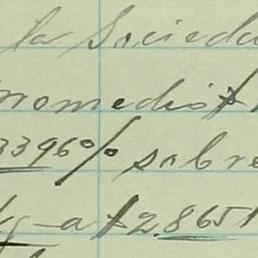 la Sociedad
promedio $
3396% sobre
Kg a $2.8651